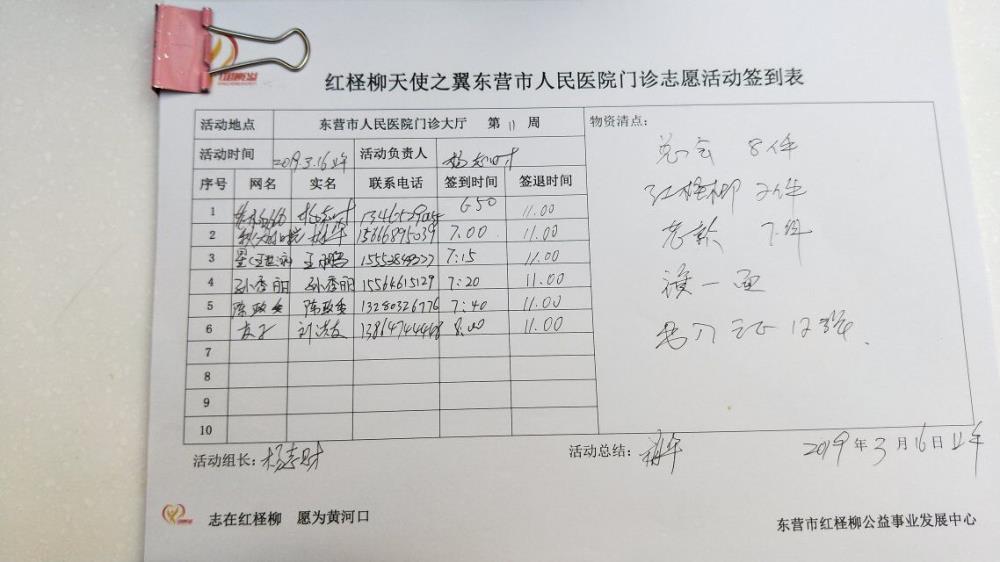 红柽柳天使之翼东营市人民医院门诊志愿活动签到表
活动地点 东营市人民医院门诊大厅 第 11 周 物资清点:
总会 8件
活动时间 2019.3.16上午 活动负责人 杨志财
红柽柳 2件
序号 网名 实名 联系电话 签到时间 签退时间
1 杨志财 6:50 11.00
老款 7件
2 15666895039 7.00 11.00
3 7:15 11.00
4 孙秀丽 孙秀丽 15564615129 7:20 11.00
旗一面
5 陈政委 陈政委 13280326776 7:40 11.00
6 友子 13864744468 8.00 11.00
出入证 12张.
7
8
9
10
活动组长: 杨志财 活动总结: 2019年3月16日上午
志在红柽柳 愿为黄河口
东营市红柽柳公益事业发展中心